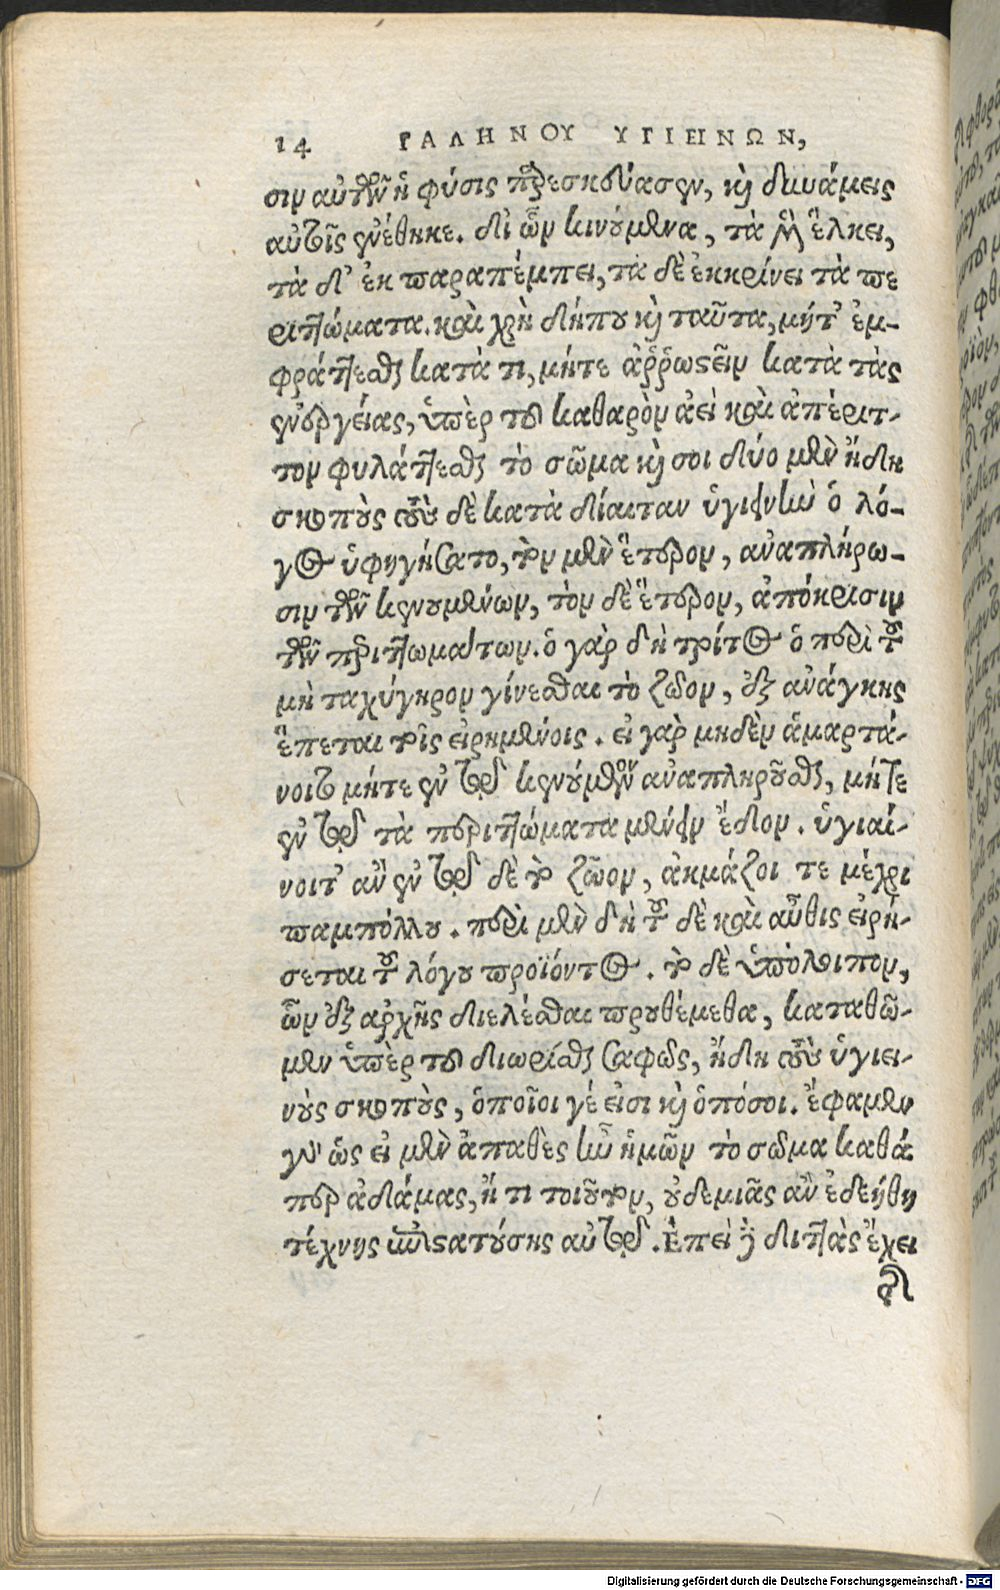 14 ΓΑΛΗΝΟΥ ΥΓΙΕΙΝΩΝ,
σιν αὐτῶν ἡ φύσις παρεσκεύασεν, καὶ δυνάμεις
αὐτοῖς ἐνέθηκε. δι ὧν κινούμενα, τὰ μὲν ἕλκει,
τὰ δ' ἐκ παραπέμπει, τὰ δὲ ἐκκρίνει τὰ πε
ριττώματα. καὶ χρὴ δήπου καὶ ταῦτα, μήτ' ἐμ-
φράττεσθαι κατὰ τι, μήτε ἀῤῥωστεῖν κατὰ τὰς
ἐνεργείας, ὑπὲρ τοῦ καθαρὸν ἀεὶ καὶ ἀπέριτ-
τον φυλάττεσθαι τὸ σῶμα καὶ σοι δύο μὲν ἤδη
σκοποὺς τοὺς δὲ κατὰ δίαιταν ὑγιεινὴν ὁ λό-
γος ὑφηγήσατο, τὸν μὲν ἕτερον, ἀναπλήρω-
σιν τῶν κενουμένων, τὸν δὲ ἕτερον, ἀπόκρισιν
τῶν περιττωμάτων. ὁ γὰρ δὴ τρίτος ὁ περὶ τοῦ
μὴ ταχύγηρον γίνεσθαι τὸ ζῶον, ἐξ ἀνάγκης
ἕπεται τοῖς εἰρημένοις. εἰ γὰρ μηδὲν ἁμαρτά-
νοιτο μήτε ἐν τῷ κενούμενον ἀναπληροῦσθαι, μήτε
ἐν τῷ τὰ περιττώματα μένειν ἔνδον. ὑγιαί-
νοιτ' ἂν ἐν τῷδε τὸ ζῶον, ἀκμάζοι τε μέχρι
παμπόλλου. περὶ μὲν δὴ τοῦδε καὶ αὖθις εἰρή-
σεται τοῦ λόγου προϊόντος. τὸ δὲ ὑπόλοιπον,
ὧν ἐξ ἀρχῆς διελέσθαι προυθέμεθα, καταθῶ-
μεν ὑπὲρ τοῦ διωρίσθαι σαφῶς, ἤδη τοὺς ὑγιει-
νοὺς σκοποὺς, ὁποῖοι γέ εἰσι καὶ ὁπόσοι. ἔφαμεν
γοῦν ὡς εἰ μὲν ἀπαθὲς ἦν ἡμῶν τὸ σῶμα καθά
περ ἀδάμας, ἤ τι τοιοῦτον, οὐδεμιᾶς ἂν ἐδεήθη
τέχνης ἐπιστατούσης αὐτῷ. Ἐπεὶ δὲ διττὰς ἔχει